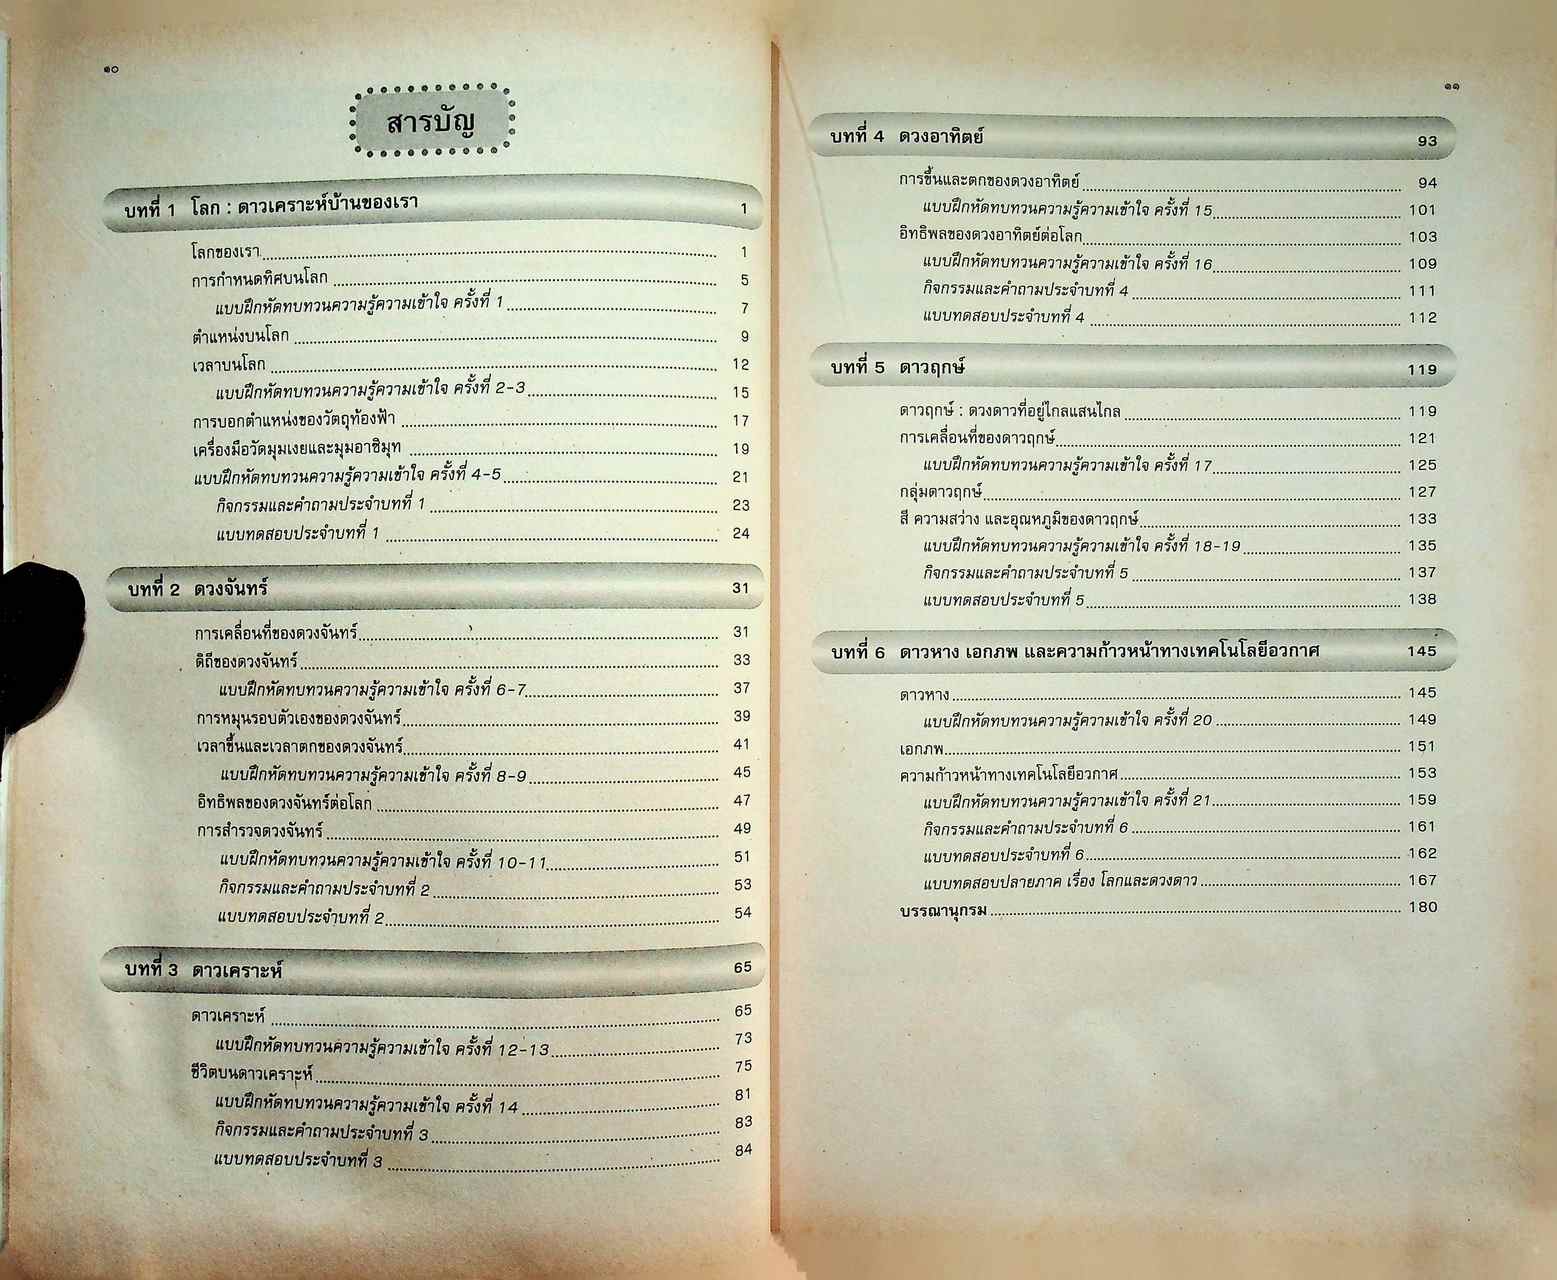 ๑๐
สารบัญ
บทที่ 1 โลก : ดาวเคราะห์บ้านของเรา 1
โลกของเรา 1
การกำหนดทิศบนโลก 5
แบบฝึกหัดทบทวนความรู้ความเข้าใจ ครั้งที่ 1 7
ตำแหน่งบนโลก 9
เวลาบนโลก 12
แบบฝึกหัดทบทวนความรู้ความเข้าใจ ครั้งที่ 2-3 15
การบอกตำแหน่งของวัตถุท้องฟ้า 17
เครื่องมือวัดมุมเงยและมุมอาซิมุท 19
แบบฝึกหัดทบทวนความรู้ความเข้าใจ ครั้งที่ 4-5 21
กิจกรรมและคำถามประจำบทที่ 1 23
แบบทดสอบประจำบทที่ 1 24
บทที่ 2 ดวงจันทร์ 31
การเคลื่อนที่ของดวงจันทร์ 31
ดิถีของดวงจันทร์ 33
แบบฝึกหัดทบทวนความรู้ความเข้าใจ ครั้งที่ 6-7 37
การหมุนรอบตัวเองของดวงจันทร์ 39
เวลาขึ้นและเวลาตกของดวงจันทร์ 41
แบบฝึกหัดทบทวนความรู้ความเข้าใจ ครั้งที่ 8-9 45
อิทธิพลของดวงจันทร์ต่อโลก 47
การสำรวจดวงจันทร์ 49
แบบฝึกหัดทบทวนความรู้ความเข้าใจ ครั้งที่ 10-11 51
กิจกรรมและคำถามประจำบทที่ 2 53
แบบทดสอบประจำบทที่ 2 54
บทที่ 3 ดาวเคราะห์ 65
ดาวเคราะห์ 65
แบบฝึกหัดทบทวนความรู้ความเข้าใจ ครั้งที่ 12-13 73
ชีวิตบนดาวเคราะห์ 75
แบบฝึกหัดทบทวนความรู้ความเข้าใจ ครั้งที่ 14 81
กิจกรรมและคำถามประจำบทที่ 3 83
แบบทดสอบประจำบทที่ 3 84
๑๑
บทที่ 4 ดวงอาทิตย์ 93
การขึ้นและตกของดวงอาทิตย์ 94
แบบฝึกหัดทบทวนความรู้ความเข้าใจ ครั้งที่ 15 101
อิทธิพลของดวงอาทิตย์ต่อโลก 103
แบบฝึกหัดทบทวนความรู้ความเข้าใจ ครั้งที่ 16 109
กิจกรรมและคำถามประจำบทที่ 4 111
แบบทดสอบประจำบทที่ 4 112
บทที่ 5 ดาวฤกษ์ 119
ดาวฤกษ์ : ดวงดาวที่อยู่ไกลแสนไกล 119
การเคลื่อนที่ของดาวฤกษ์ 121
แบบฝึกหัดทบทวนความรู้ความเข้าใจ ครั้งที่ 17 125
กลุ่มดาวฤกษ์ 127
สี ความสว่าง และอุณหภูมิของดาวฤกษ์ 133
แบบฝึกหัดทบทวนความรู้ความเข้าใจ ครั้งที่ 18-19 135
กิจกรรมและคำถามประจำบทที่ 5 137
แบบทดสอบประจำบทที่ 5 138
บทที่ 6 ดาวหาง เอกภพ และความก้าวหน้าทางเทคโนโลยีอวกาศ 145
ดาวหาง 145
แบบฝึกหัดทบทวนความรู้ความเข้าใจ ครั้งที่ 20 149
เอกภพ 151
ความก้าวหน้าทางเทคโนโลยีอวกาศ 153
แบบฝึกหัดทบทวนความรู้ความเข้าใจ ครั้งที่ 21 159
กิจกรรมและคำถามประจำบทที่ 6 161
แบบทดสอบประจำบทที่ 6 162
แบบทดสอบปลายภาค เรื่อง โลกและดวงดาว 167
บรรณานุกรม 180